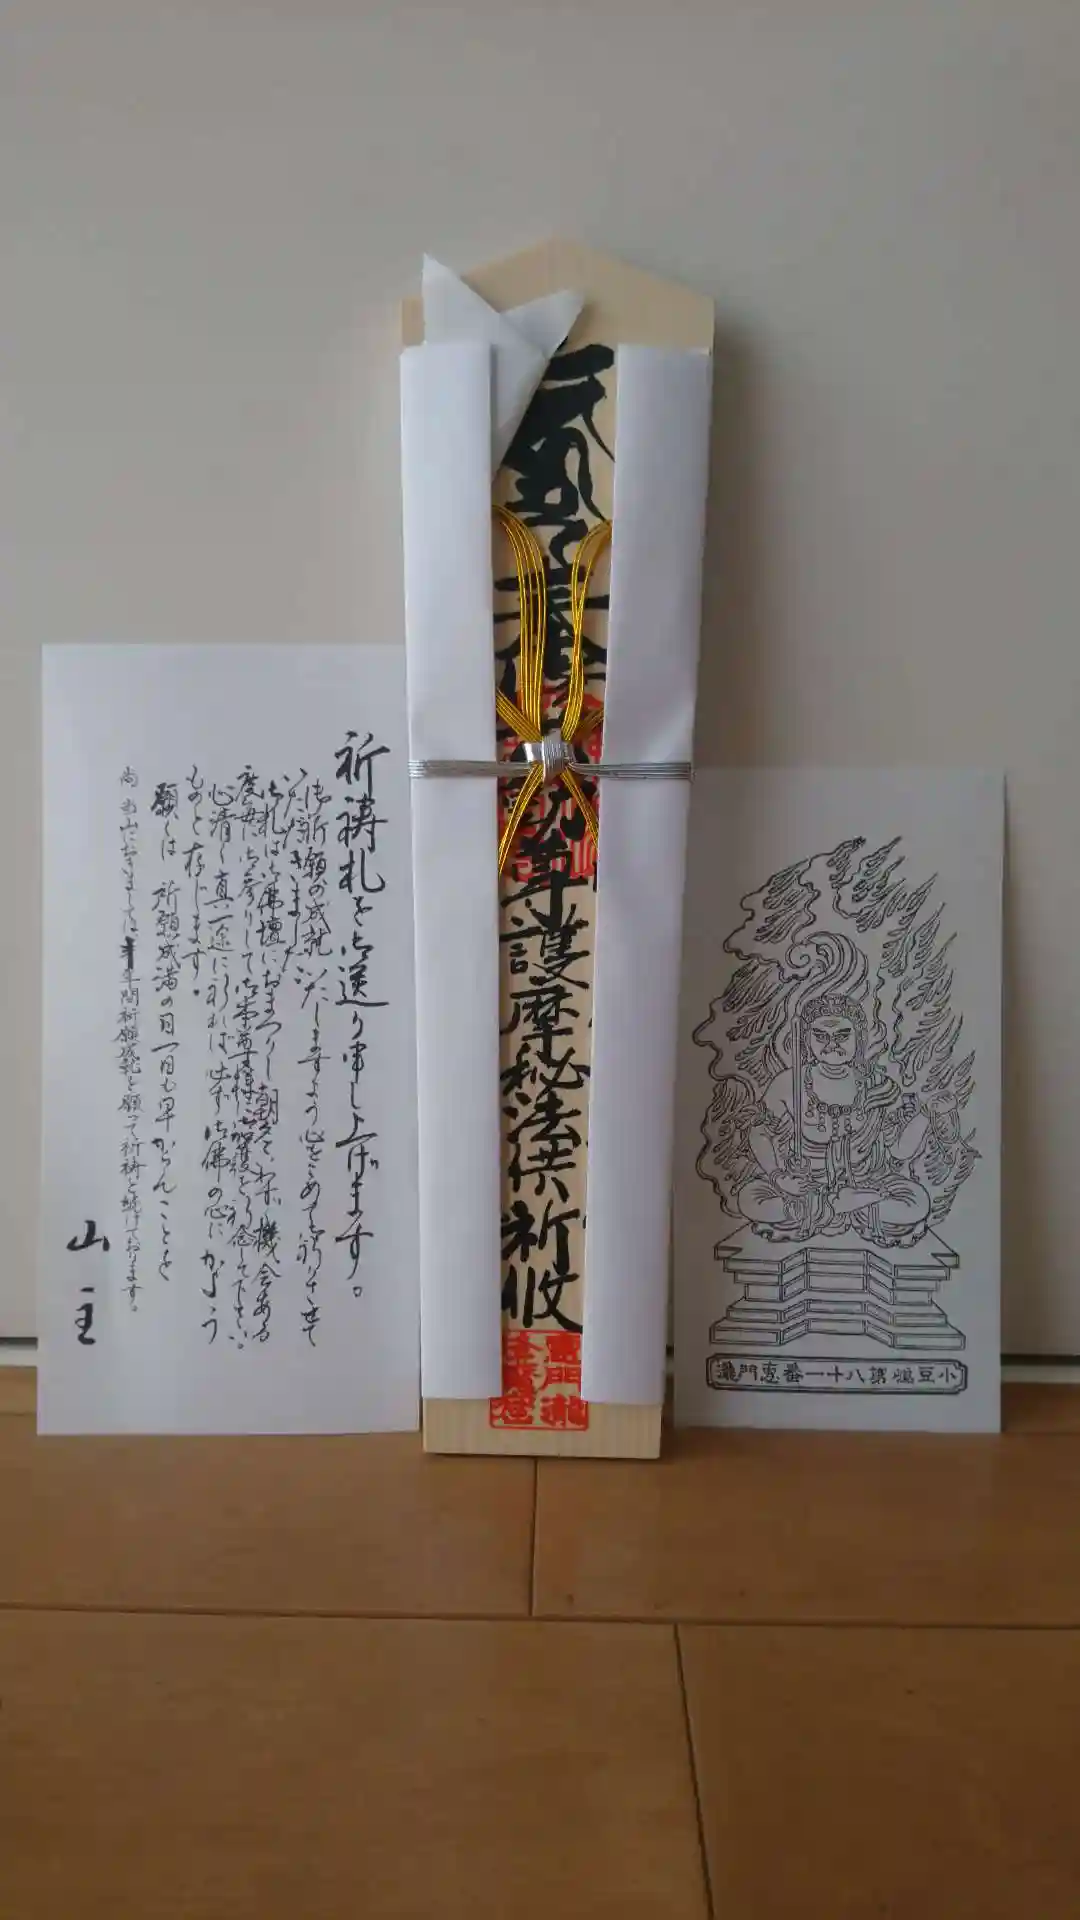 祈祷札を御送り申し上げます。
御祈願の成就いたしますよう心をこめて御祈りさせて
いただきました。
御札は御佛壇におまつりし朝夕、又は機会ある
度毎に御参りして御本尊様に御加護を御祈念して下さい。
心清く真一途に祈れば必ず御佛の心にかよう
ものと存じます。
願くは 祈願成満の日一日も早からんことを
尚 当山におきましては 半年間祈願成就を願って祈祷を続けております。
山主
奉修
尊護摩秘法供祈收
恵門瀧
小豆嶋第八十一番恵門瀧